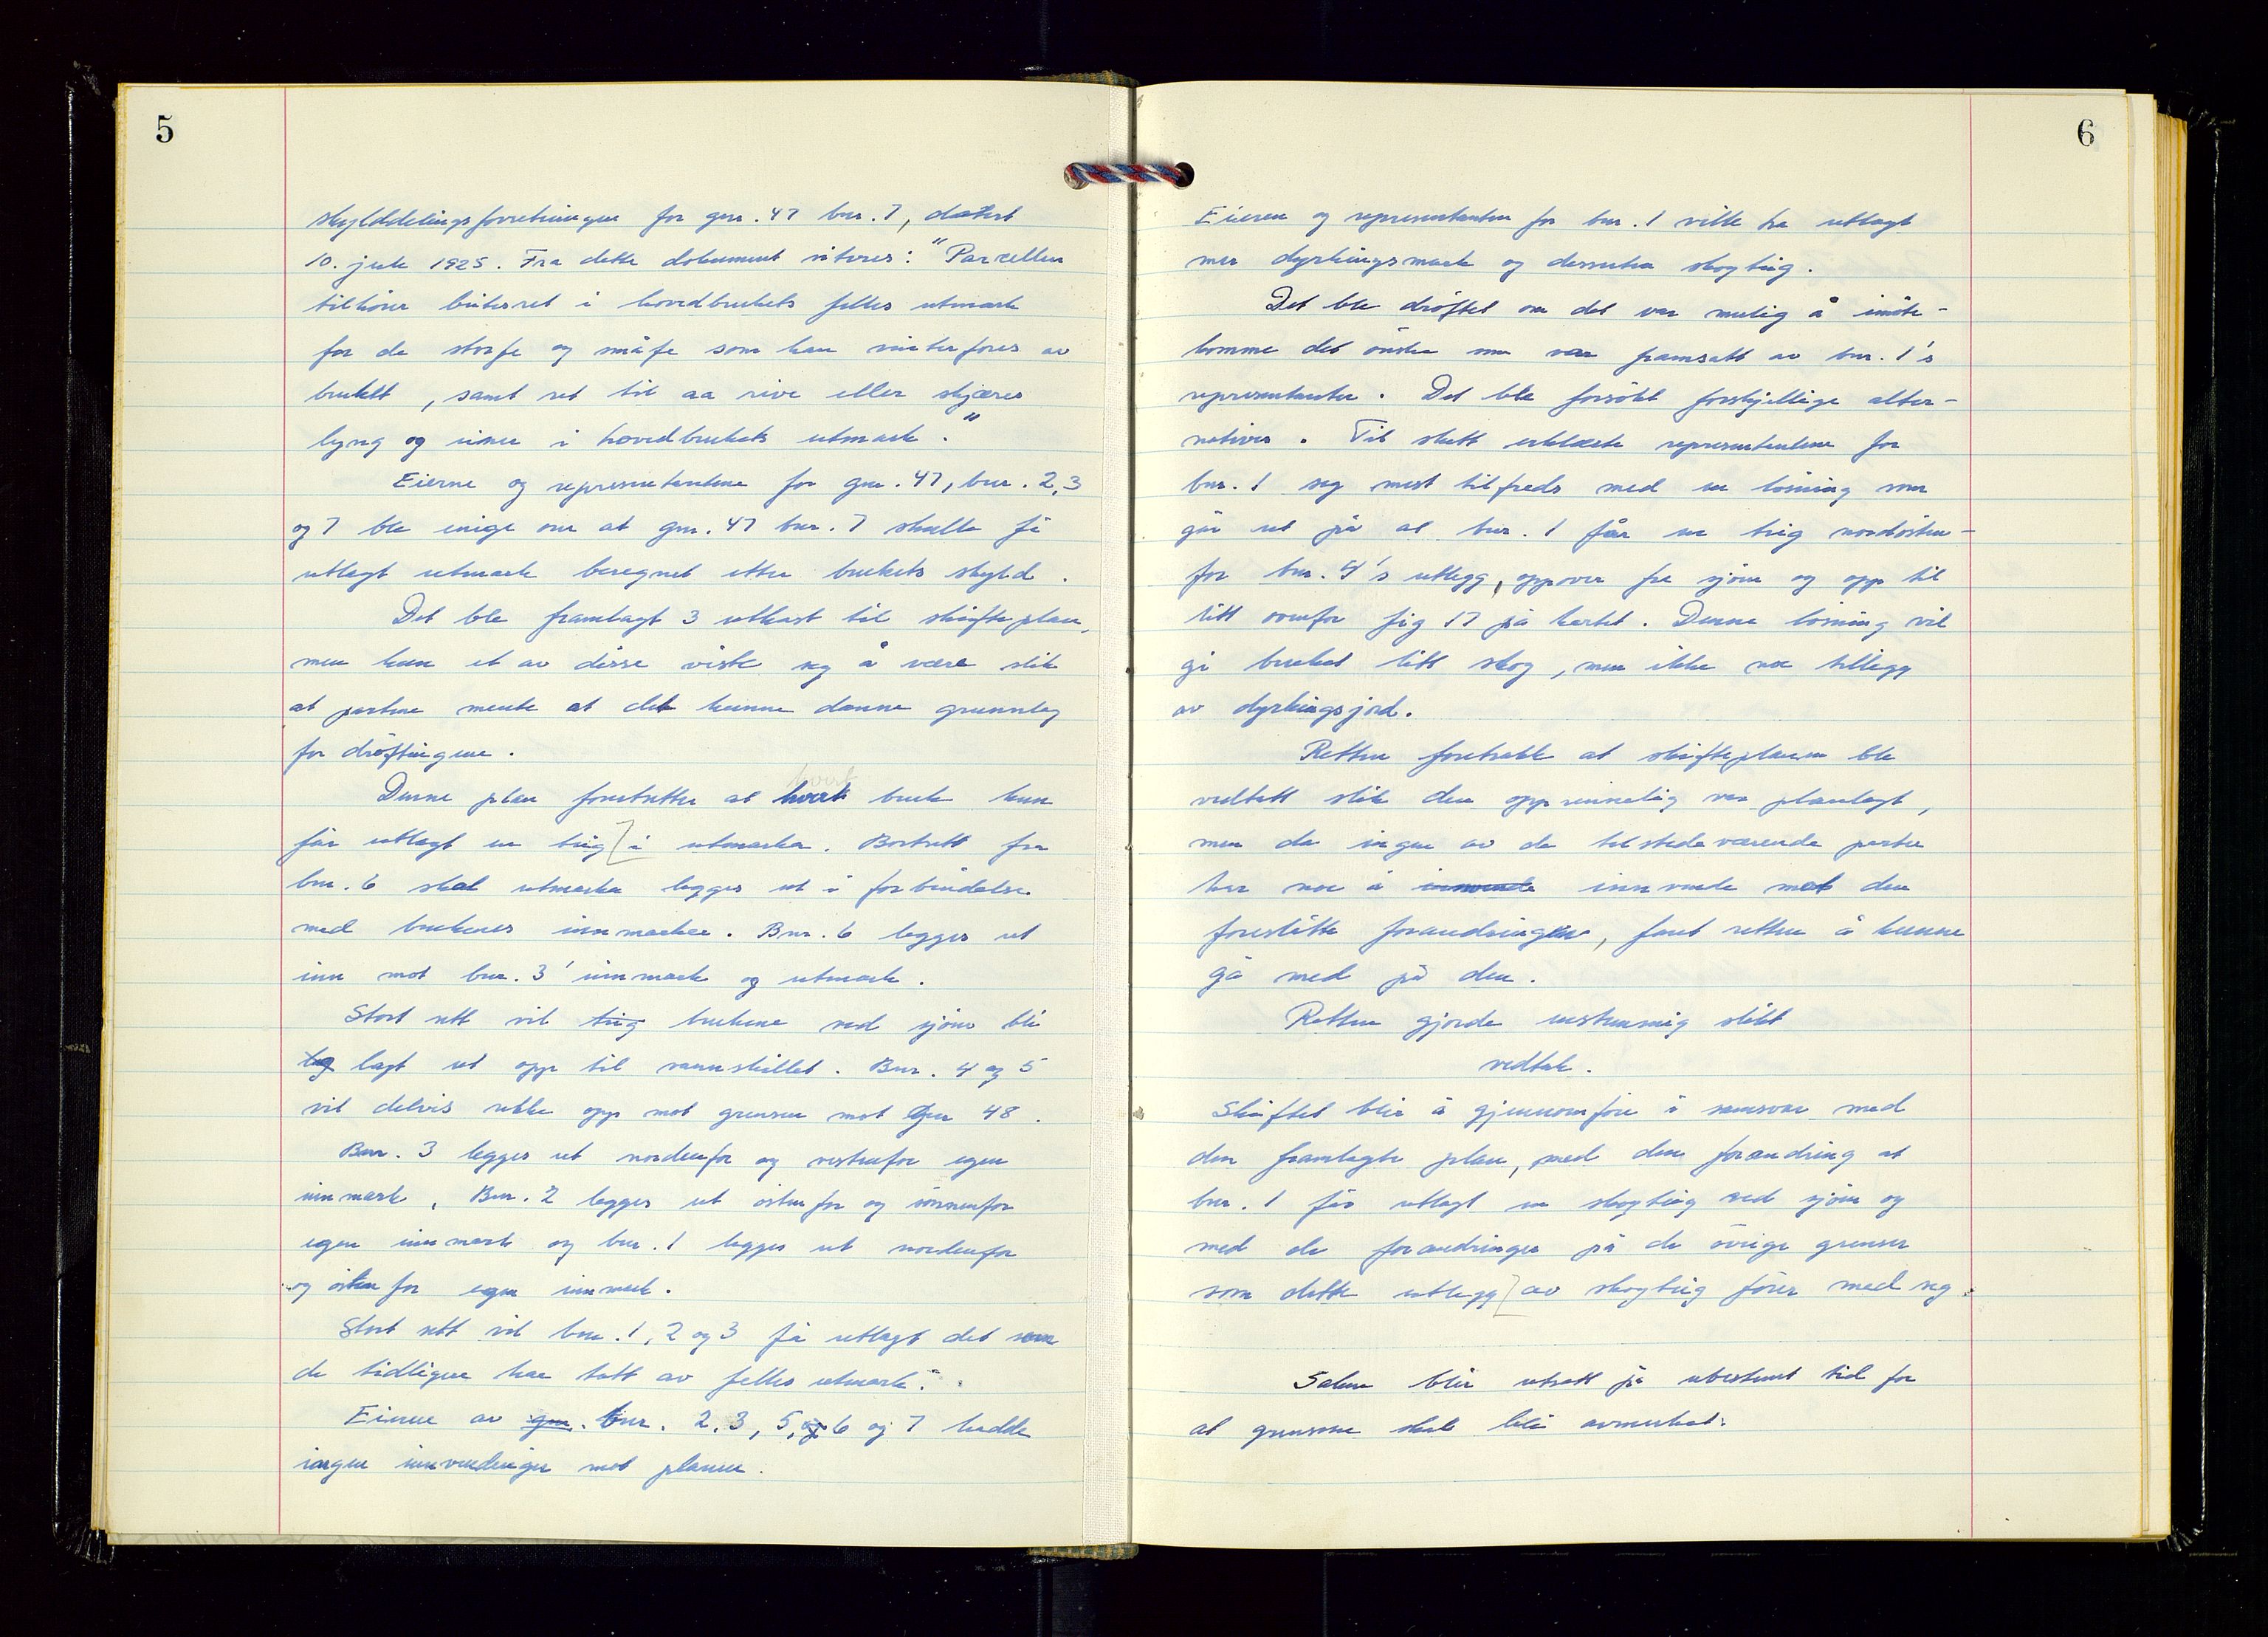 5
skylddelingsforretningen for gnr. 47 bnr. 7, datert
10. juli 1925. Fra dette dokument siteres: "Parcellen
tilhører beitesret i hovedbrukets felles utmark
for de storfe og småfe som kan vinterfores av
bruket, samt ret til aa rive eller skjære
lyng og einer i hovedbrukets utmark."
Eierne og representantene for gnr. 47, bnr. 2, 3
og 7 ble enige om at gnr. 47 bnr. 7 skulle få
utlagt utmark beregnet etter brukets skyld.
Det ble framlagt 3 utkast til skifteplan,
men kun et av disse viste seg å være slik
at partene mente at det kunne danne grunnlag
for drøftingene.
hvert
Denne plan forutsetter at hvert bruk kun
får utlagt en teig i utmarka. Bortsett fra
bnr. 6 skal utmarka legges ut i forbindelse
med brukenes innmarker. Bnr. 6 legges ut
inn mot bnr. 3' innmark og utmark.
Stort sett vil teig brukene ved sjøen bli
lag lagt ut opp til vannskillet. Bnr. 4 og 5
vil delvis rekke opp mot grensen mot Gnr 48.
Bnr. 3 legges ut nordenfor og vestenfor egen
innmark, Bnr. 2 legges ut østenfor og sønnenfor
egen innmark og bnr. 1 legges ut nordenfor
og østenfor egen innmark.
Stort sett vil bnr. 1, 2 og 3 få utlagt det som
de tidligere har tatt av felles utmark.
Eierne av gnr. bnr. 2, 3, 5, og 6 og 7 hadde
ingen innvendinger mot planen.
6
Eieren og representanten for bnr. 1 ville ha utlagt
mer dyrkingsmark og dessuten skogteig.
Det ble drøftet om det var mulig å imøte-
komme det ønske som var framsatt av bnr. 1's
representanter. Det ble forsøkt forskjellige alter-
nativer. Til slutt erklærte representantene for
bnr. 1 seg mest tilfreds med en løsning som
går ut på at bnr. 1 får en teig nordøsten-
for bnr. 4's utlegg, oppover fra sjøen og opp til
litt ovenfor fig 17 på kartet. Denne løsning vil
gi bruket litt skog, men ikke noe tillegg
av dyrkingsjord.
Retten foretrakk at skifteplanen ble
vedtatt slik den opprinnelig var planlagt,
men da ingen av de tilstedeværende parter
har noe å innvende innvende mot den
foreslåtte forandringen, fant retten å kunne
gå med på den.
Retten gjorde enstemmig slikt
vedtak.
Skiftet blir å gjennomføre i samsvar med
den framlagte plan, med den forandring at
bnr. 1 får utlagt en skogteig ved sjøen og
med de forandringer på de øvrige grenser
som dette utlegg av skogteig fører med seg.
Saken blir utsatt på ubestemt tid for
at grensene skal bli avmerket.